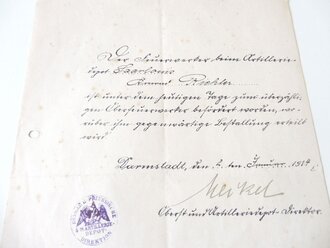 Der Feuerwerker beim Artillerie-
depot Saarlouis
Konrad Richter
ist unter dem heutigen Tage zum überzähli-
gen Oberfeuerwerker befördert worden, wor-
über ihm gegenwärtige Bestallung erteilt
wird.
Darmstadt, den ten Januar 1914
Oberst und Artilleriedepot-Direktor.
KÖNIGLICH PREUSSISCHE
ARTILLERIE
DEPOT
DIREKTION